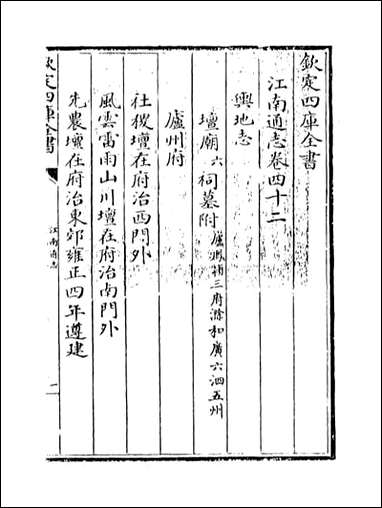 欽定四庫全書
江南通志卷四十二
輿地志
壇廟六祠墓附廬鳳潁三府滁和廣六泗五州
廬州府
社稷壇在府治西門外
風雲雷雨山川壇在府治南門外
先農壇在府治東郊雍正四年遵建
欽定四庫全書
江南通志